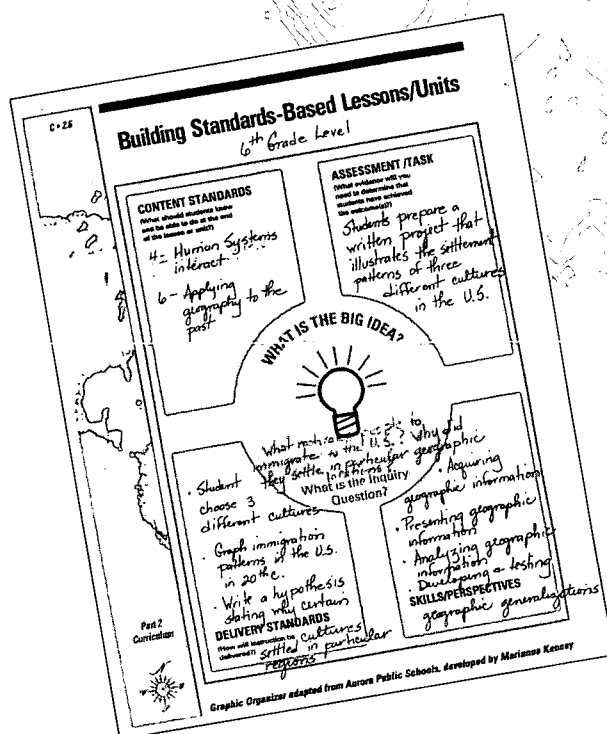 C • 25
Building Standards-Based Lessons/Units
6th Grade Level
CONTENT STANDARDS
(What should students know
and be able to do at the end
of the lesson or unit?)
4 - Human Systems
interact
6 - Applying
geography to the
past
ASSESSMENT/TASK
(What evidence will you
need to determine that
students have achieved
the outcome(s)?)
Students prepare a
written project that
illustrates the settlement
patterns of three
different cultures
in the U.S.
WHAT IS THE BIG IDEA?
What people to
immigrate to the U.S.? Why did
they settle in particular geographic
locations?
What is the Inquiry
Question?
• Student
choose 3
different cultures
• Graph immigration
patterns in the U.S.
in 20th c.
• Write a hypothesis
stating why certain
cultures
settled in particular
regions
DELIVERY STANDARDS
(How will instruction be
delivered?)
• Acquiring
geographic information
• Presenting geographic
information
• Analyzing geographic
information
• Developing & testing
geographic generalizations
SKILLS/PERSPECTIVES
Part 2
Curriculum
Graphic Organizer adapted from Aurora Public Schools, developed by Marianne Kenney